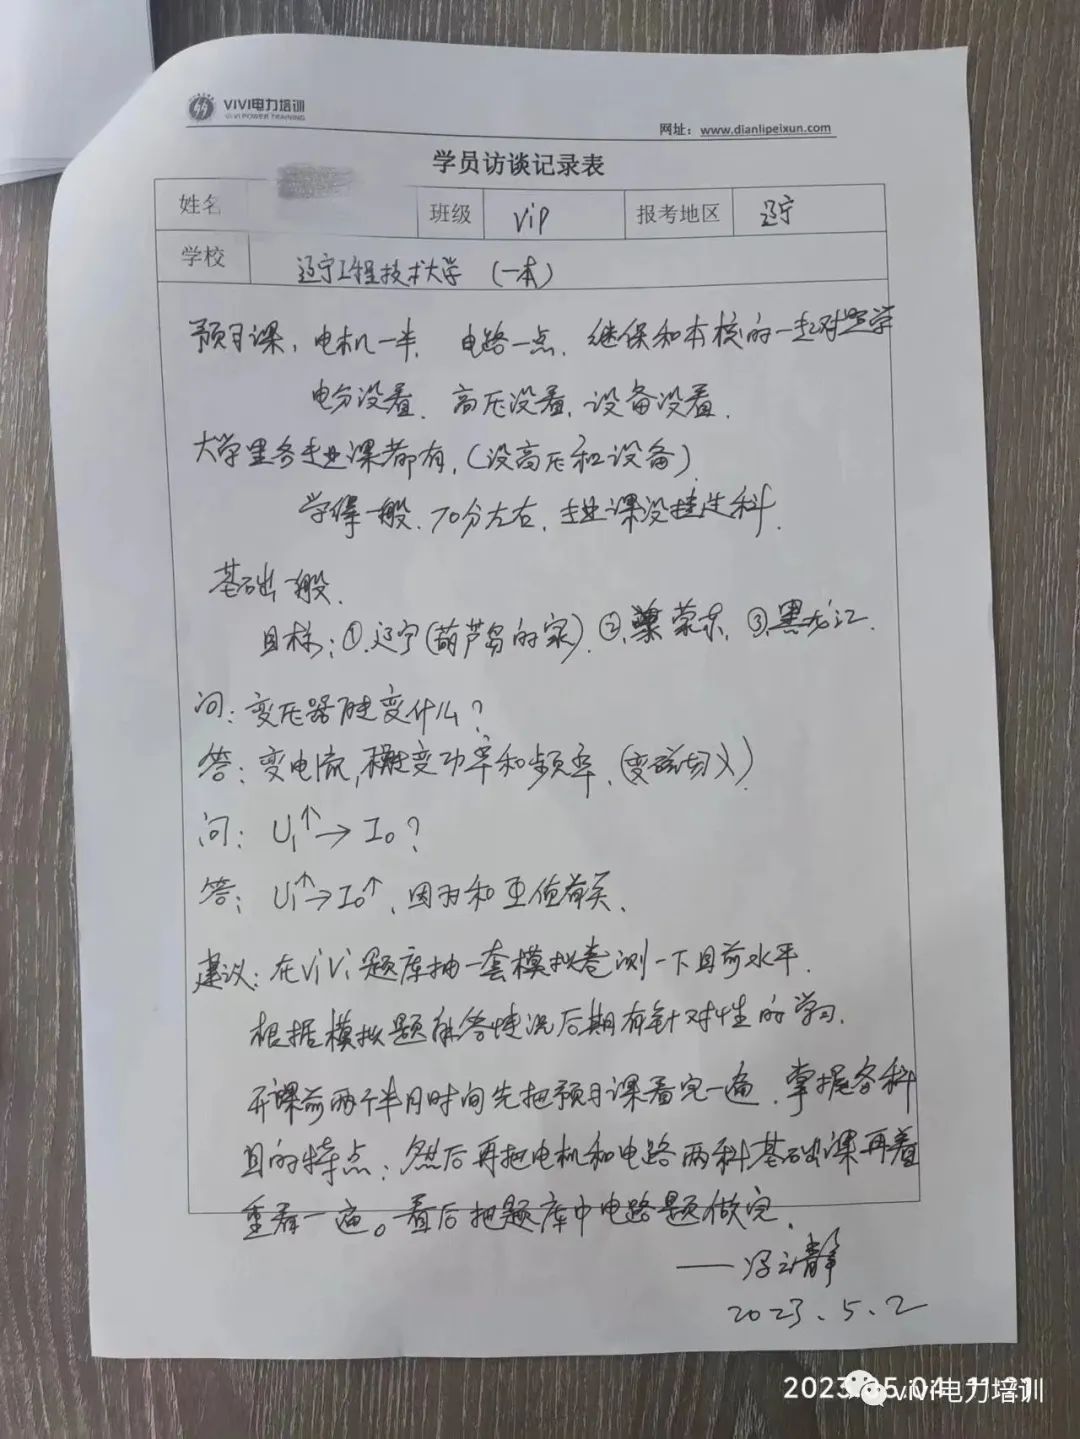 ViVi电力培训
VIVI POWER TRAINING
网址：www.dianlipeixun.com
学员访谈记录表
姓名 班级 vip 报考地区 辽宁
学校 辽宁工程技术大学（一本）
预习课，电机一半．电路一点．继保和本校的一起对照学
电分没看．高压没看，设备没看．
大学里各专业课都有，（没高压和设备）
学得一般．70分左右．专业课没挂过科．
基础一般．
目标：①.辽宁（葫芦岛的家）．②．蒙东．③.黑龙江．
问：变压器能变什么？
答：变电流，不能变功率和频率．
问：U₁↑→I₀？
答：U₁↑→I₀↑．因为和正值有关．
建议：在ViVi题库抽一套模拟卷测一下目前水平．
根据模拟题解答情况后期有针对性的学习．
开课前两个半月时间先把预习课看完一遍．掌握各科
目的特点；然后再把电机和电路两科基础课再着
重看一遍。看后把题库中电路题做完．
2023.5.2
2023.05.04 11:21
vivi电力培训